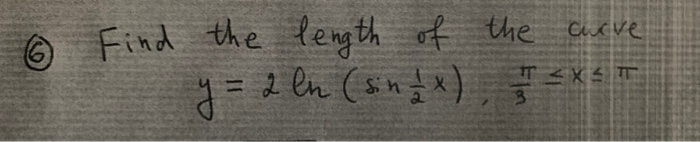 ⑥ Find the length of the curve
y = 2 ln (sin ½ x), π/3 ≤ x ≤ π